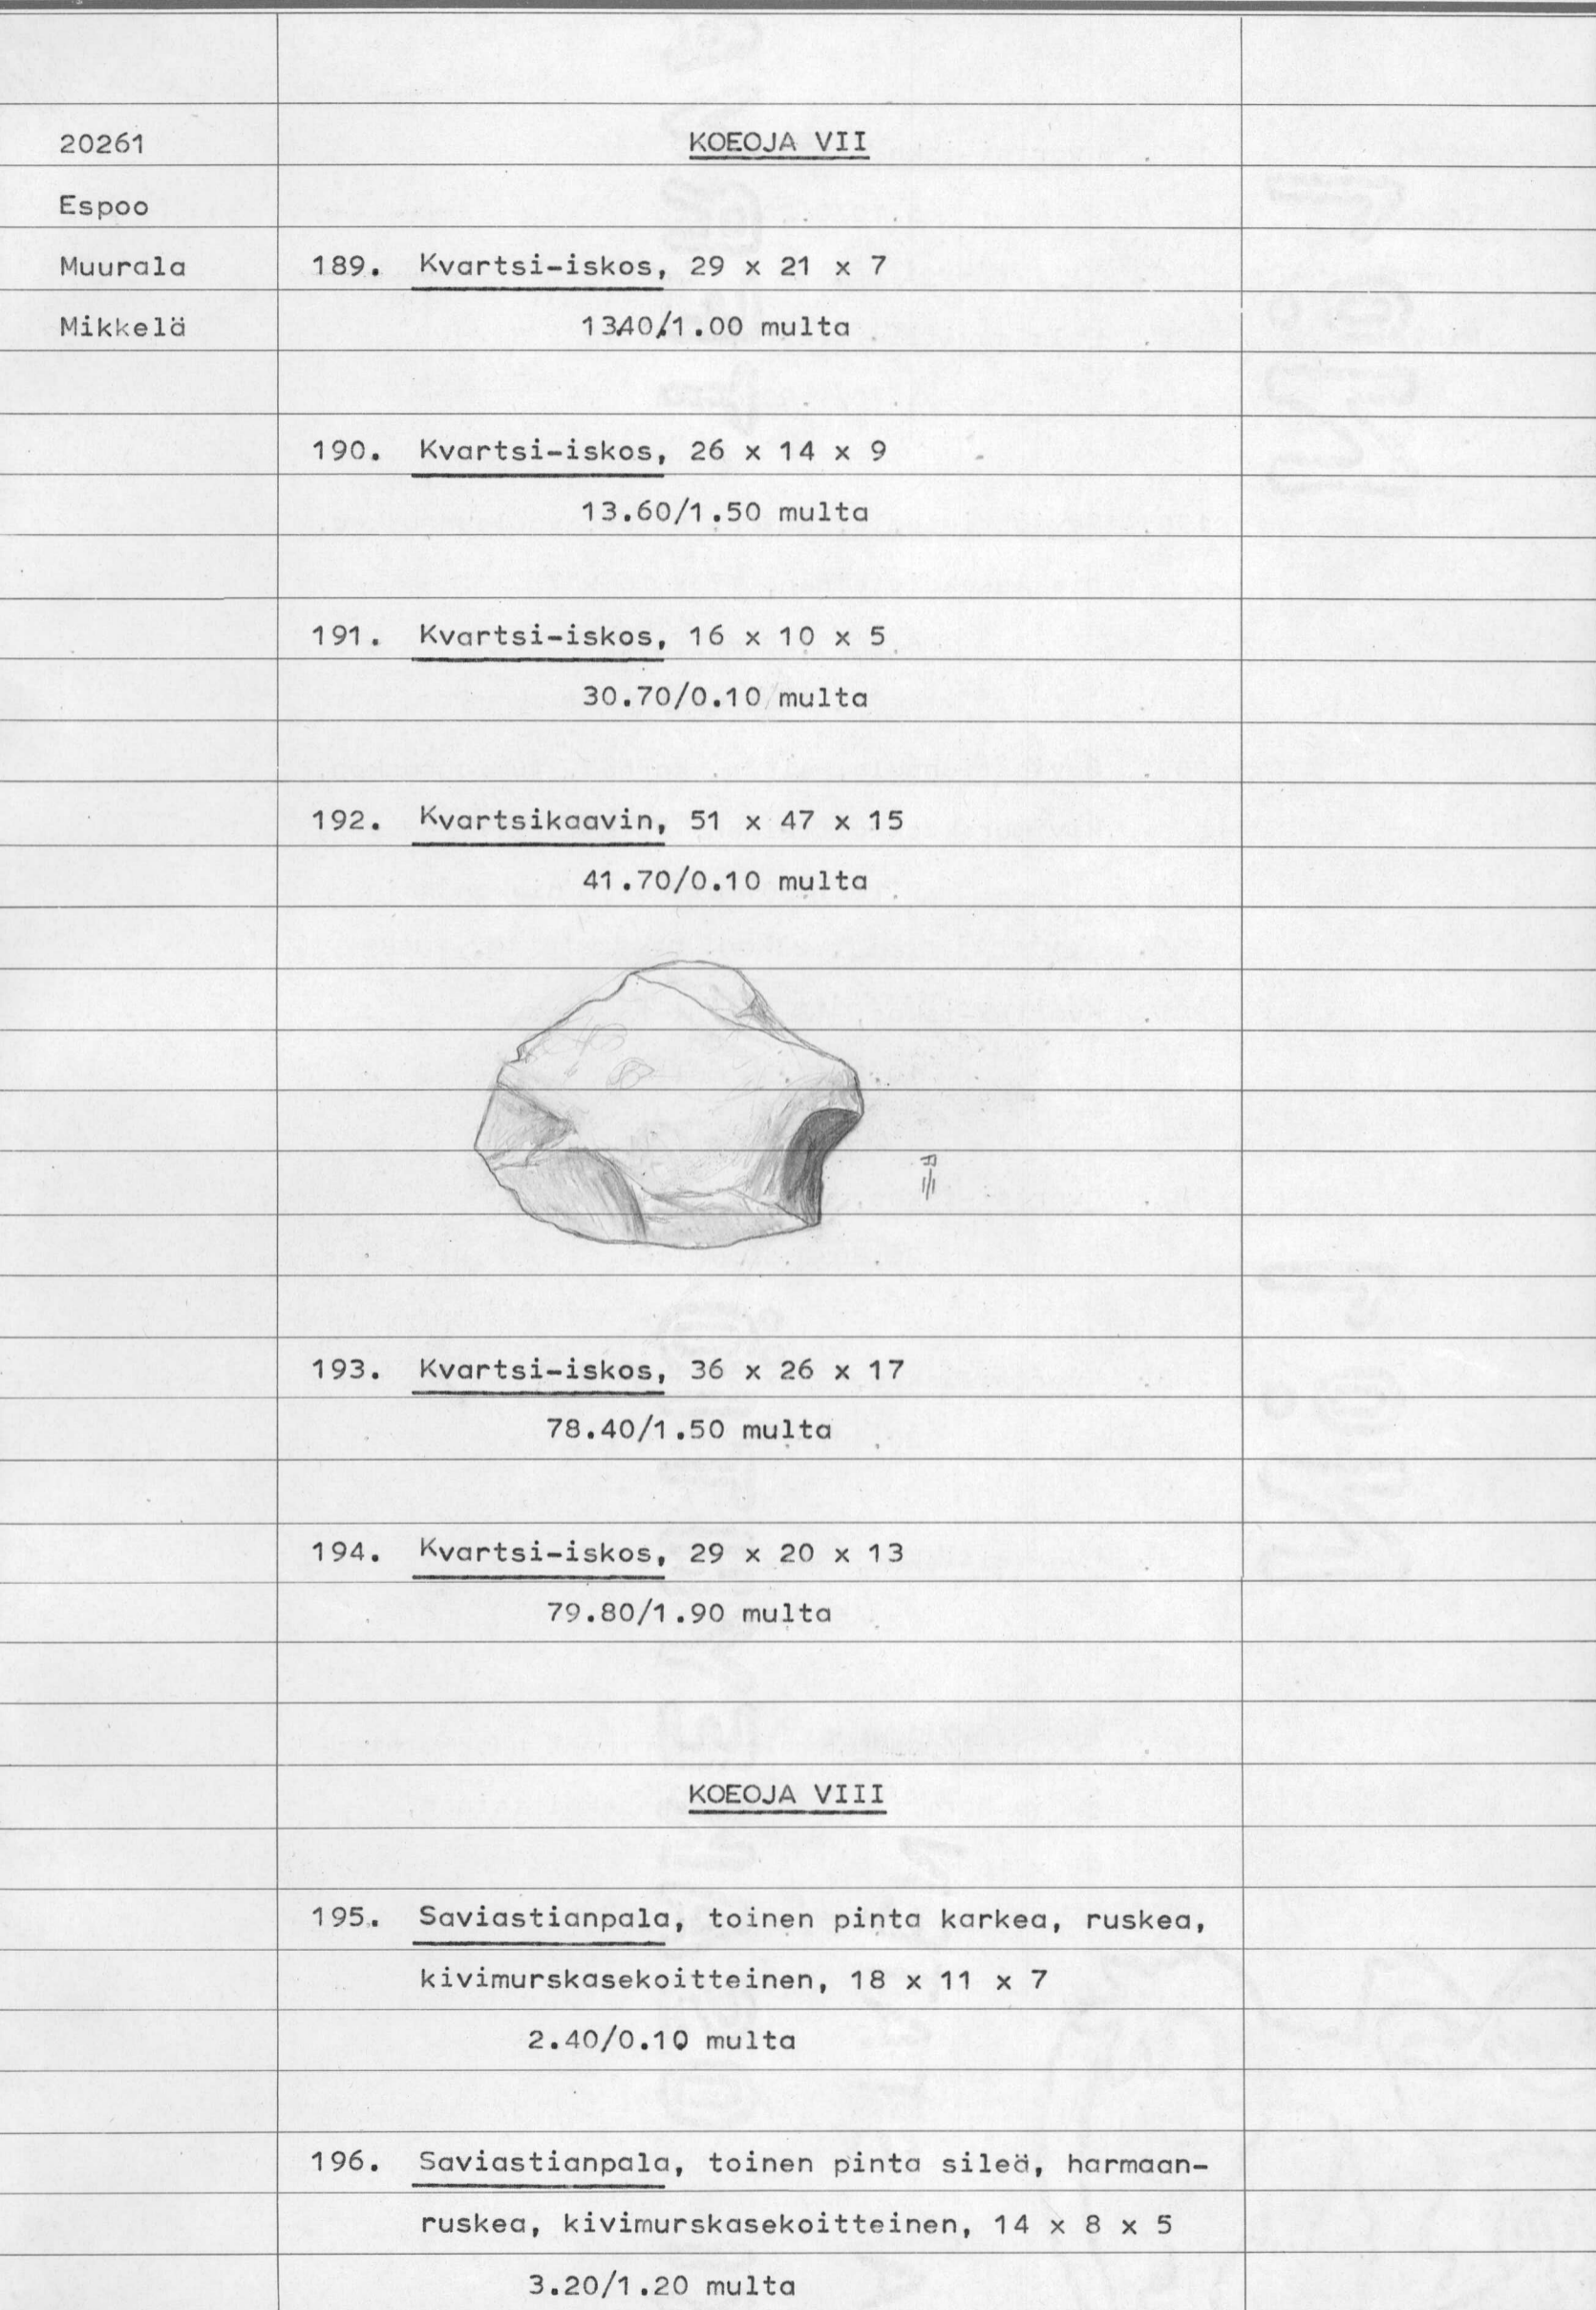 20261
Espoo
Muurala
Mikkelä
KOEOJA VII
189. Kvartsi-iskos, 29 x 21 x 7
13.40/1.00 multa
190. Kvartsi-iskos, 26 x 14 x 9
13.60/1.50 multa
191. Kvartsi-iskos, 16 x 10 x 5
30.70/0.10 multa
192. Kvartsikaavin, 51 x 47 x 15
41.70/0.10 multa
193. Kvartsi-iskos, 36 x 26 x 17
78.40/1.50 multa
194. Kvartsi-iskos, 29 x 20 x 13
79.80/1.90 multa
KOEOJA VIII
195. Saviastianpala, toinen pinta karkea, ruskea,
kivimurskasekoitteinen, 18 x 11 x 7
2.40/0.10 multa
196. Saviastianpala, toinen pinta sileä, harmaan-
ruskea, kivimurskasekoitteinen, 14 x 8 x 5
3.20/1.20 multa